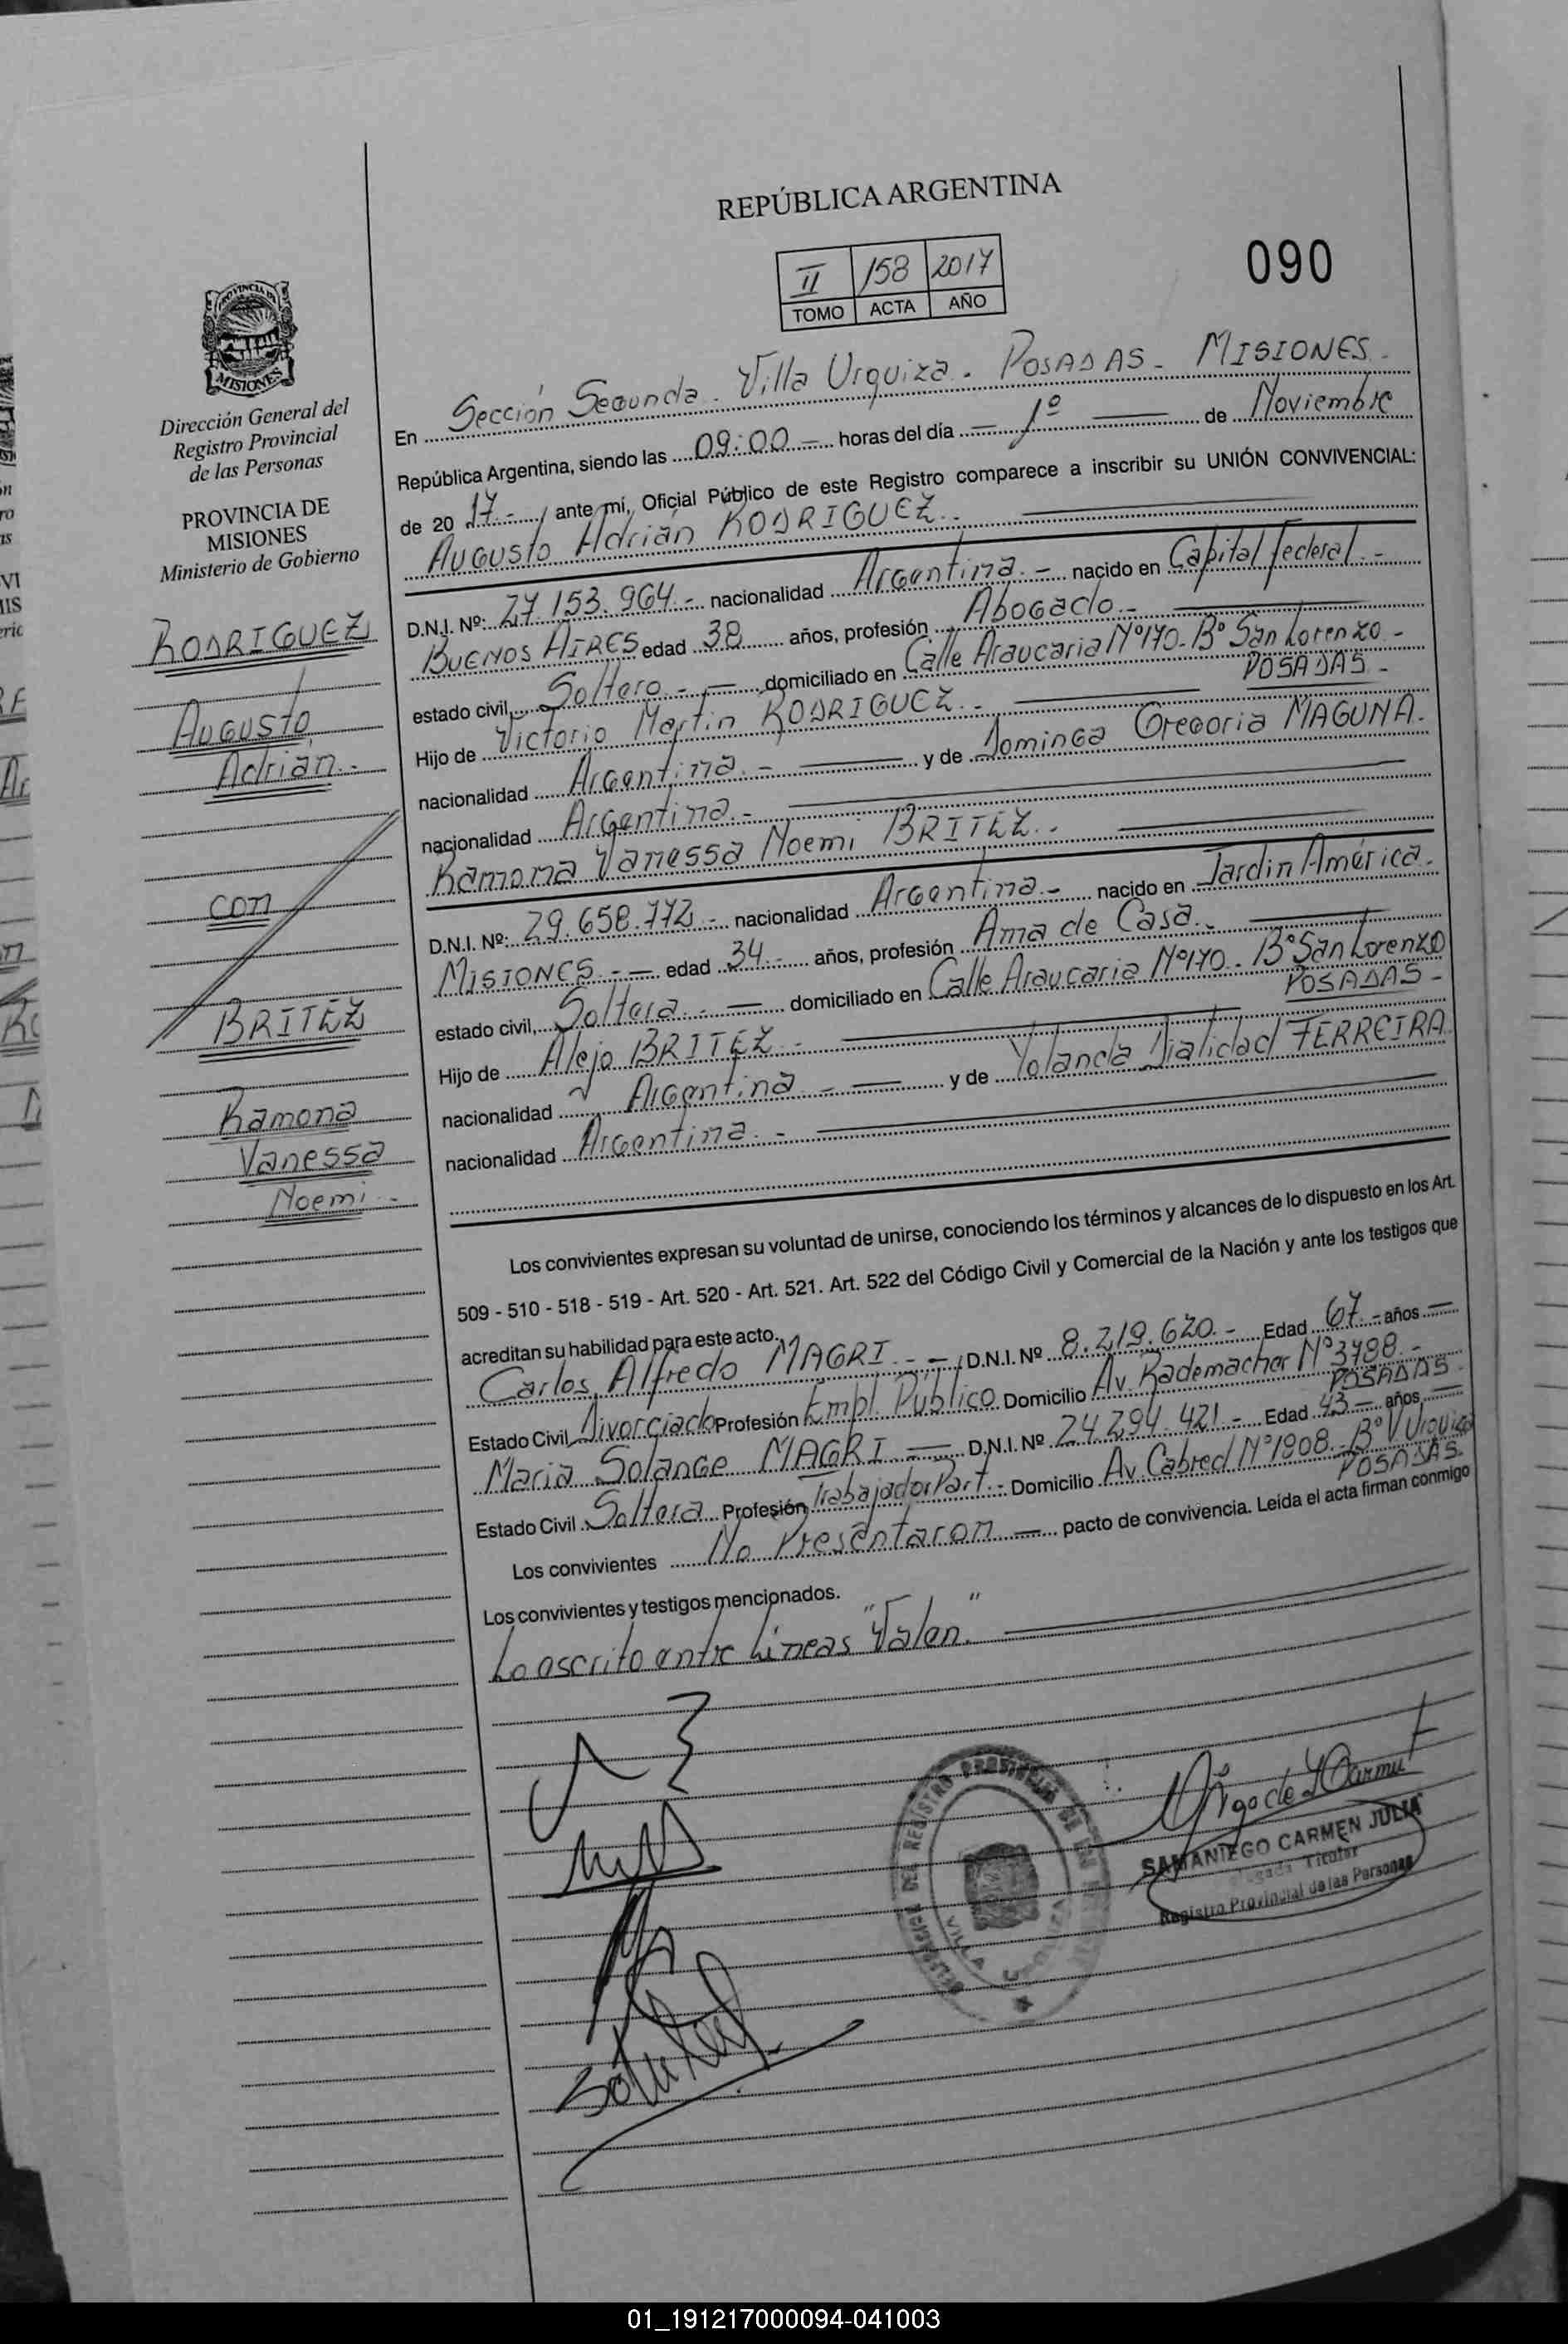 REPÚBLICA ARGENTINA
II 158 2017
TOMO ACTA AÑO
090
PROVINCIA DE
MISIONES
Dirección General del
Registro Provincial
de las Personas
PROVINCIA DE
MISIONES
Ministerio de Gobierno
RODRIGUEZ
Augusto
Adrián.-
con
BRITEZ
Ramona
Vanessa
Noemi.-
En Sección Segunda. Villa Urquiza. POSADAS - MISIONES.
República Argentina, siendo las 09:00 — horas del día — 1º — de Noviembre
de 20 17.- ante mí, Oficial Público de este Registro comparece a inscribir su UNIÓN CONVIVENCIAL:
Augusto Adrián RODRIGUEZ.-
D.N.I. Nº: 27.153.964.- nacionalidad Argentina.- nacido en Capital Federal.-
BUENOS AIRES edad 38 años, profesión Abogado.-
estado civil, Soltero.- — domiciliado en Calle Araucaria Nº170. Bº San Lorenzo.-
POSADAS.-
Hijo de Victorio Martin RODRIGUEZ.-
nacionalidad Argentina.- — y de Dominga Gregoria MAGUNA.
nacionalidad Argentina.-
Ramona Vanessa Noemi BRITEZ.-
D.N.I. Nº: 29.658.772.- nacionalidad Argentina.- nacido en Jardin América.
MISIONES.- — edad 34.- años, profesión Ama de Casa.-
estado civil, Soltera.- — domiciliado en Calle Araucaria Nº170. Bº San Lorenzo
POSADAS.-
Hijo de Alejo BRITEZ.-
nacionalidad Argentina.- — y de Yolanda Dialidad FERREIRA
nacionalidad Argentina.-
Los convivientes expresan su voluntad de unirse, conociendo los términos y alcances de lo dispuesto en los Art.
509 - 510 - 518 - 519 - Art. 520 - Art. 521. Art. 522 del Código Civil y Comercial de la Nación y ante los testigos que
acreditan su habilidad para este acto.
Carlos Alfredo MAGRI.- — D.N.I. Nº 8.219.620.- Edad 67.- años —
Estado Civil Divorciado Profesión Empl. Público Domicilio Av. Rademacher Nº3788.-
POSADAS.
Maria Solange MAGRI — D.N.I. Nº 24.294.421.- Edad 43.- años —
Estado Civil Soltera Profesión Trabajador Part.- Domicilio Av. Cabred Nº1908. Bº V Urquiza
POSADAS.
Los convivientes No Presentaron — pacto de convivencia. Leída el acta firman conmigo
Los convivientes y testigos mencionados.
Lo escrito entre Lineas "Valen."
SAMANIEGO CARMEN JULIA
Titular
Registro Provincial de las Personas
01_191217000094-041003